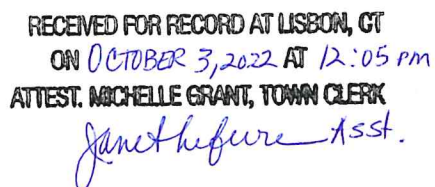 RECEIVED FOR RECORD AT LISBON, CT
ON OCTOBER 3, 2022 AT 12:05 PM
ATTEST. MICHELLE GRANT, TOWN CLERK
Janet Lefevre Asst.